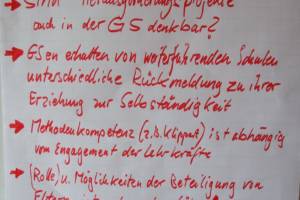 Sind Herausforderungsprojekte
auch in der GS denkbar?
GSen erhalten von weiterführenden Schulen
unterschiedliche Rückmeldung zu ihrer
Erziehung zur Selbständigkeit
Methodenkompetenz (z.B. Klippert) ist abhängig
vom Engagement der Lehrkräfte
(Rolle) u. Möglichkeiten der Beteiligung von
Eltern